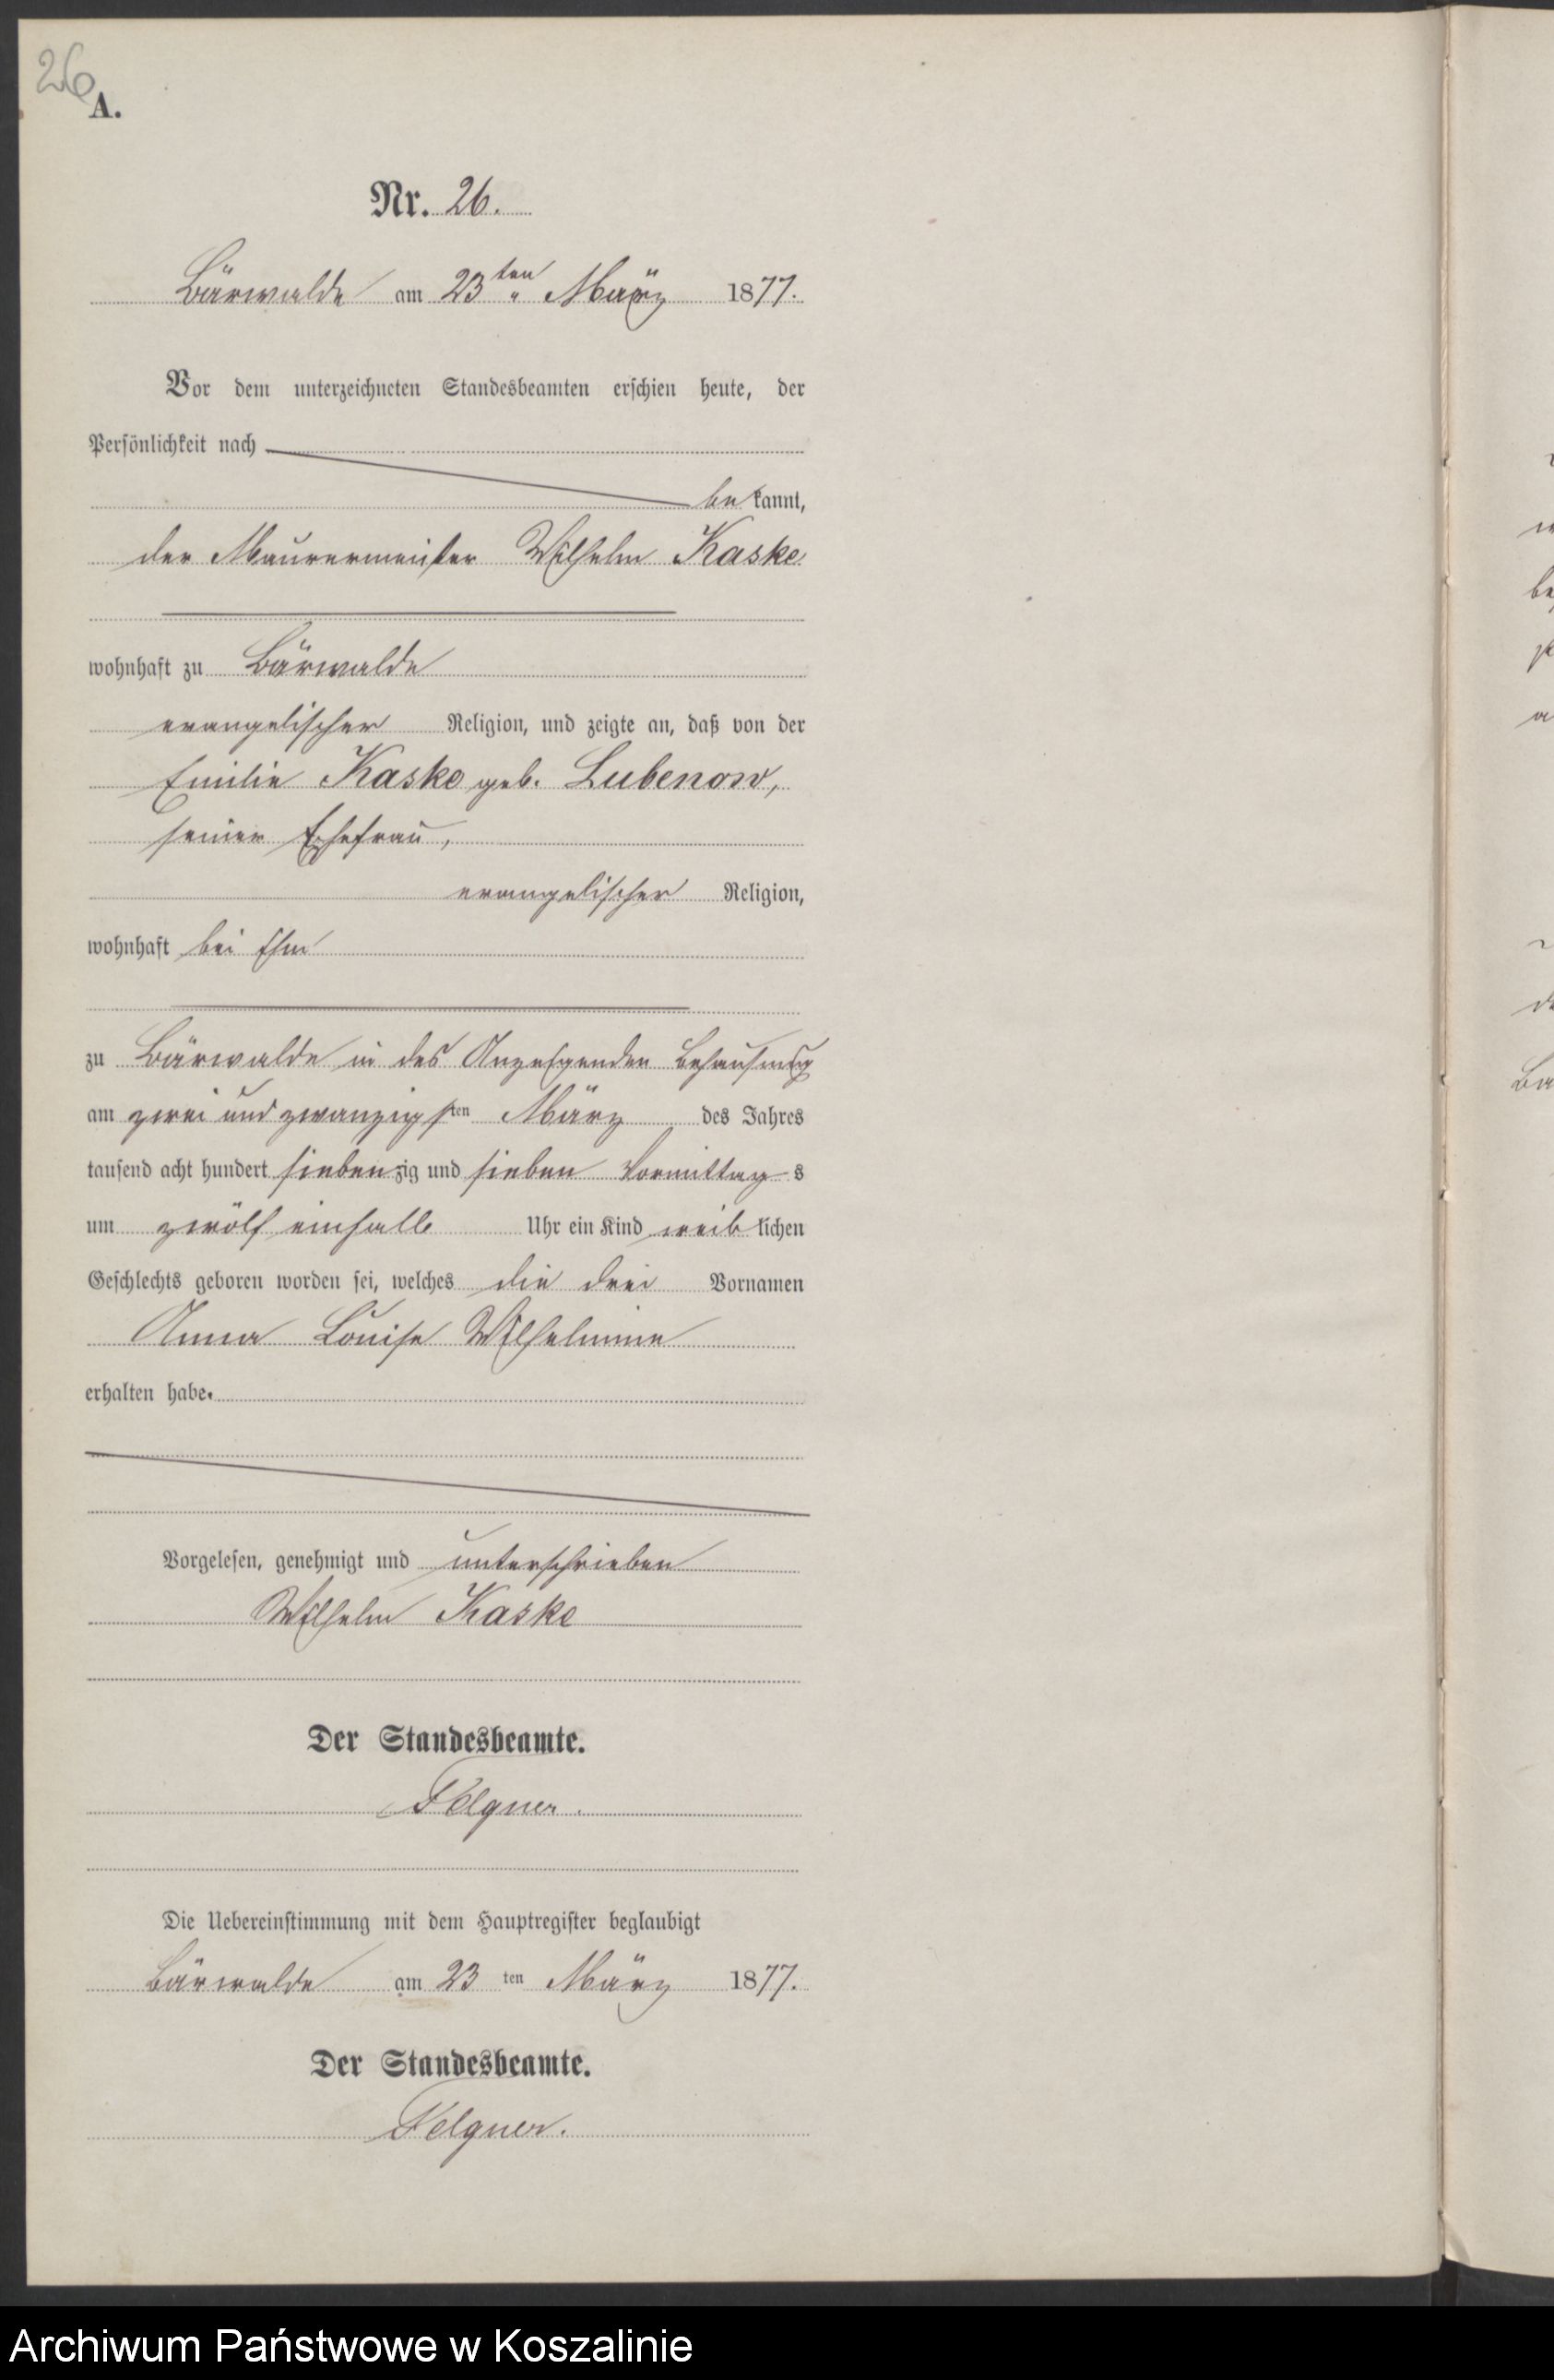 26
A.
Nr. 26.
Bärwalde am 23ten März 1877.
Vor dem unterzeichneten Standesbeamten erschien heute, der
Persönlichkeit nach
be kannt,
der Maurermeister Wilhelm Kaske
wohnhaft zu Bärwalde
evangelischer Religion, und zeigte an, daß von der
Emilie Kaske geb. Lubenow,
seiner Ehefrau,
evangelischer Religion,
wohnhaft bei Ihm
zu Bärwalde in des Anzeigenden Behausung
am zwei und zwanzigsten März des Jahres
tausend acht hundert siebenzig und sieben Vormittags
um zwölf einhalb Uhr ein Kind weiblichen
Geschlechts geboren worden sei, welches die drei Vornamen
Anna Louise Wilhelmine
erhalten habe.
Vorgelesen, genehmigt und unterschrieben
Wilhelm Kaske
Der Standesbeamte.
Felgner.
Die Uebereinstimmung mit dem Hauptregister beglaubigt
Bärwalde am 23 ten März 1877.
Der Standesbeamte.
Felgner.
Archiwum Państwowe w Koszalinie